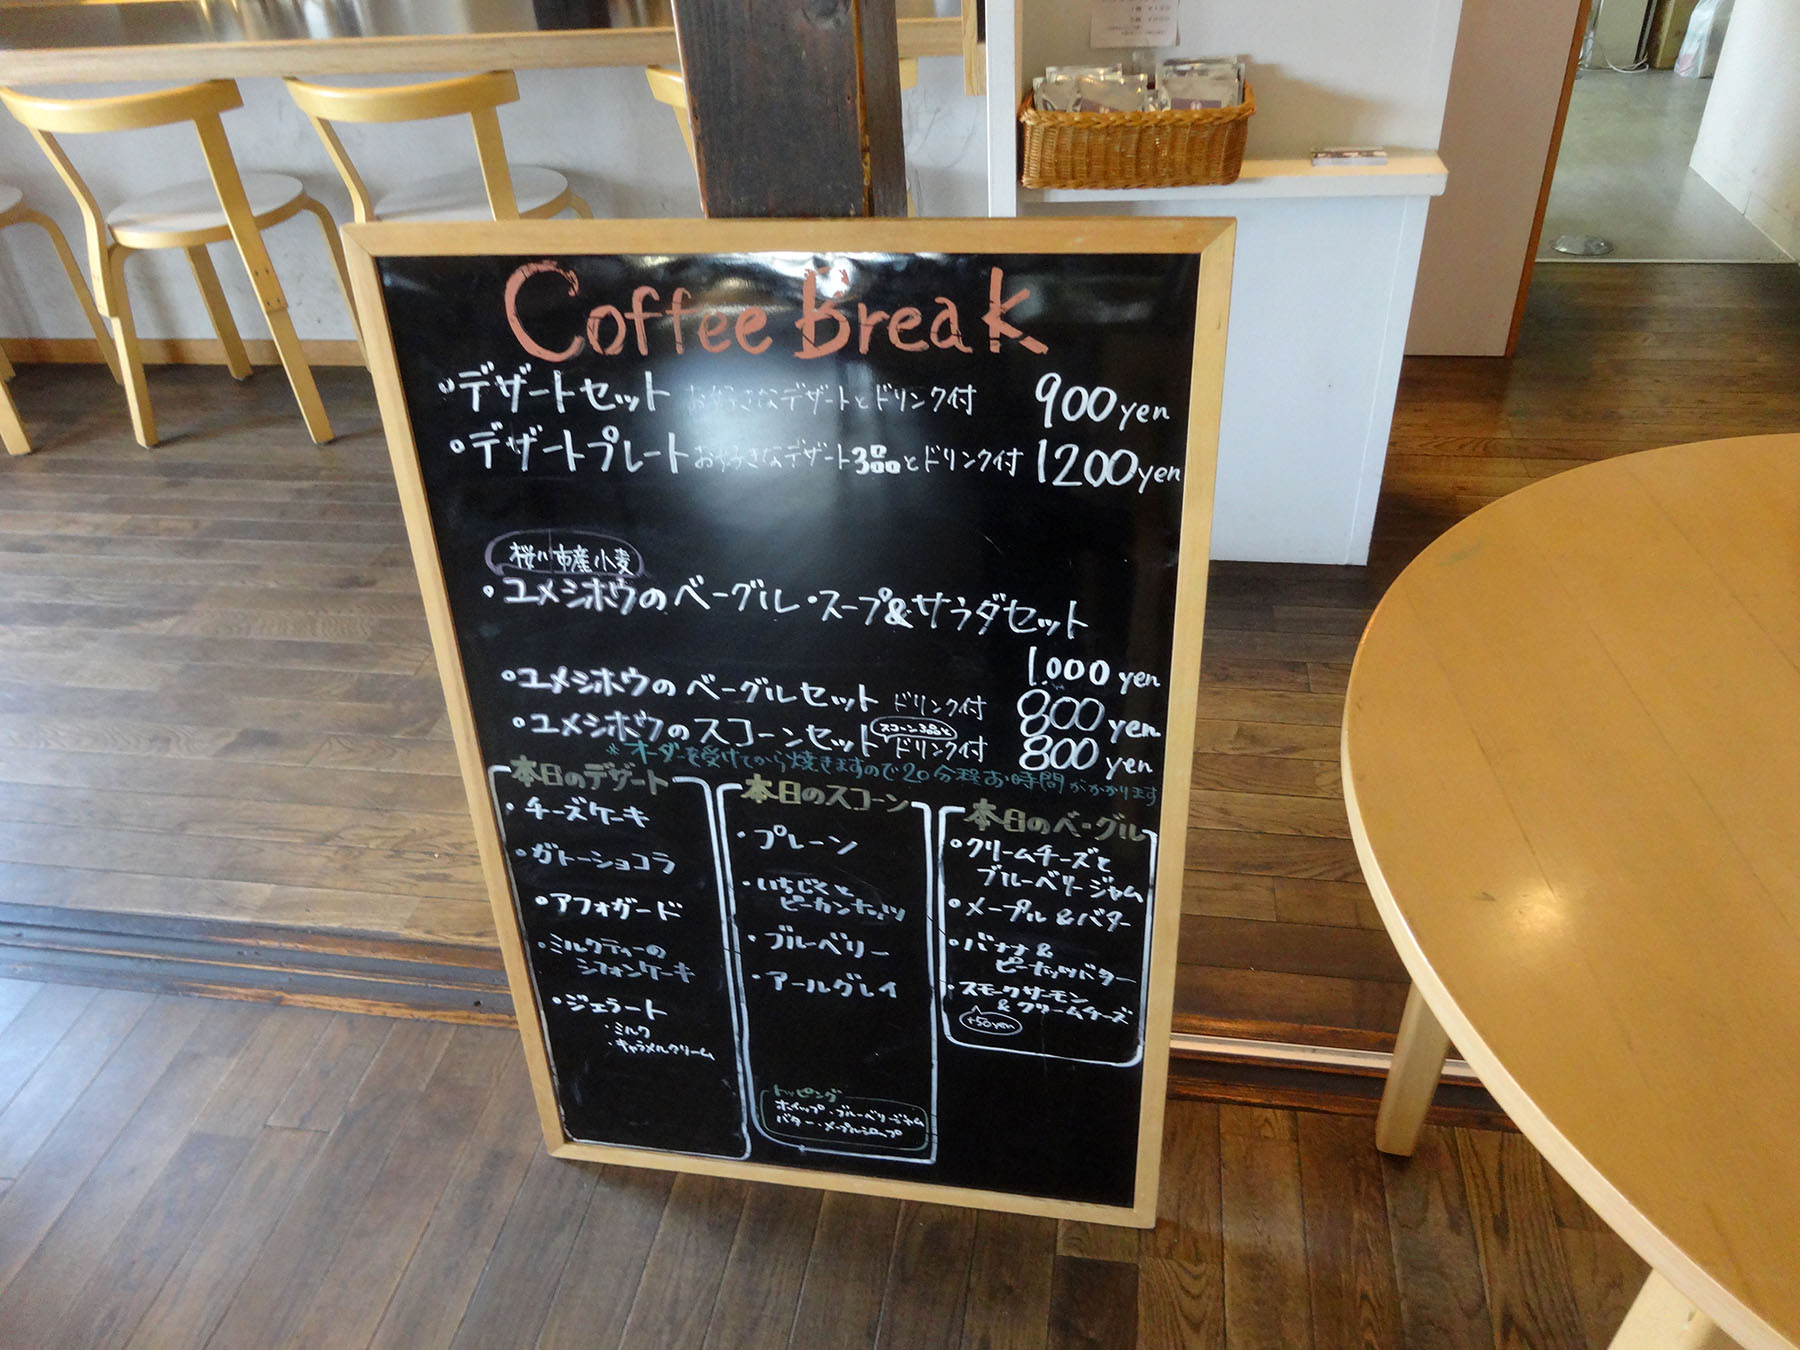 Coffee Break
・デザートセット お好きなデザートとドリンク付 900yen
・デザートプレート お好きなデザート3品とドリンク付 1200yen
桜川市産小麦
・ユメシホウのベーグル・スープ&サラダセット
1.000yen
・ユメシホウのベーグルセット ドリンク付 800yen
・ユメシホウのスコーンセット スコーン3品と ドリンク付 800yen
※オーダーを受けてから焼きますので20分程お時間がかかります
本日のデザート
・チーズケーキ
・ガトーショコラ
・アフォガード
・ミルクティーの
シフォンケーキ
・ジェラート
・ミルク
・キャラメルクリーム
本日のスコーン
・プレーン
・いちじくと
ピーカンナッツ
・ブルーベリー
・アールグレイ
トッピング
ホイップ・ブルーベリージャム
バター・メープルシロップ
本日のベーグル
・クリームチーズと
ブルーベリージャム
・メープル&バター
・バナナ&
ピーナッツバター
・スモークサーモン
&クリームチーズ
+50yen